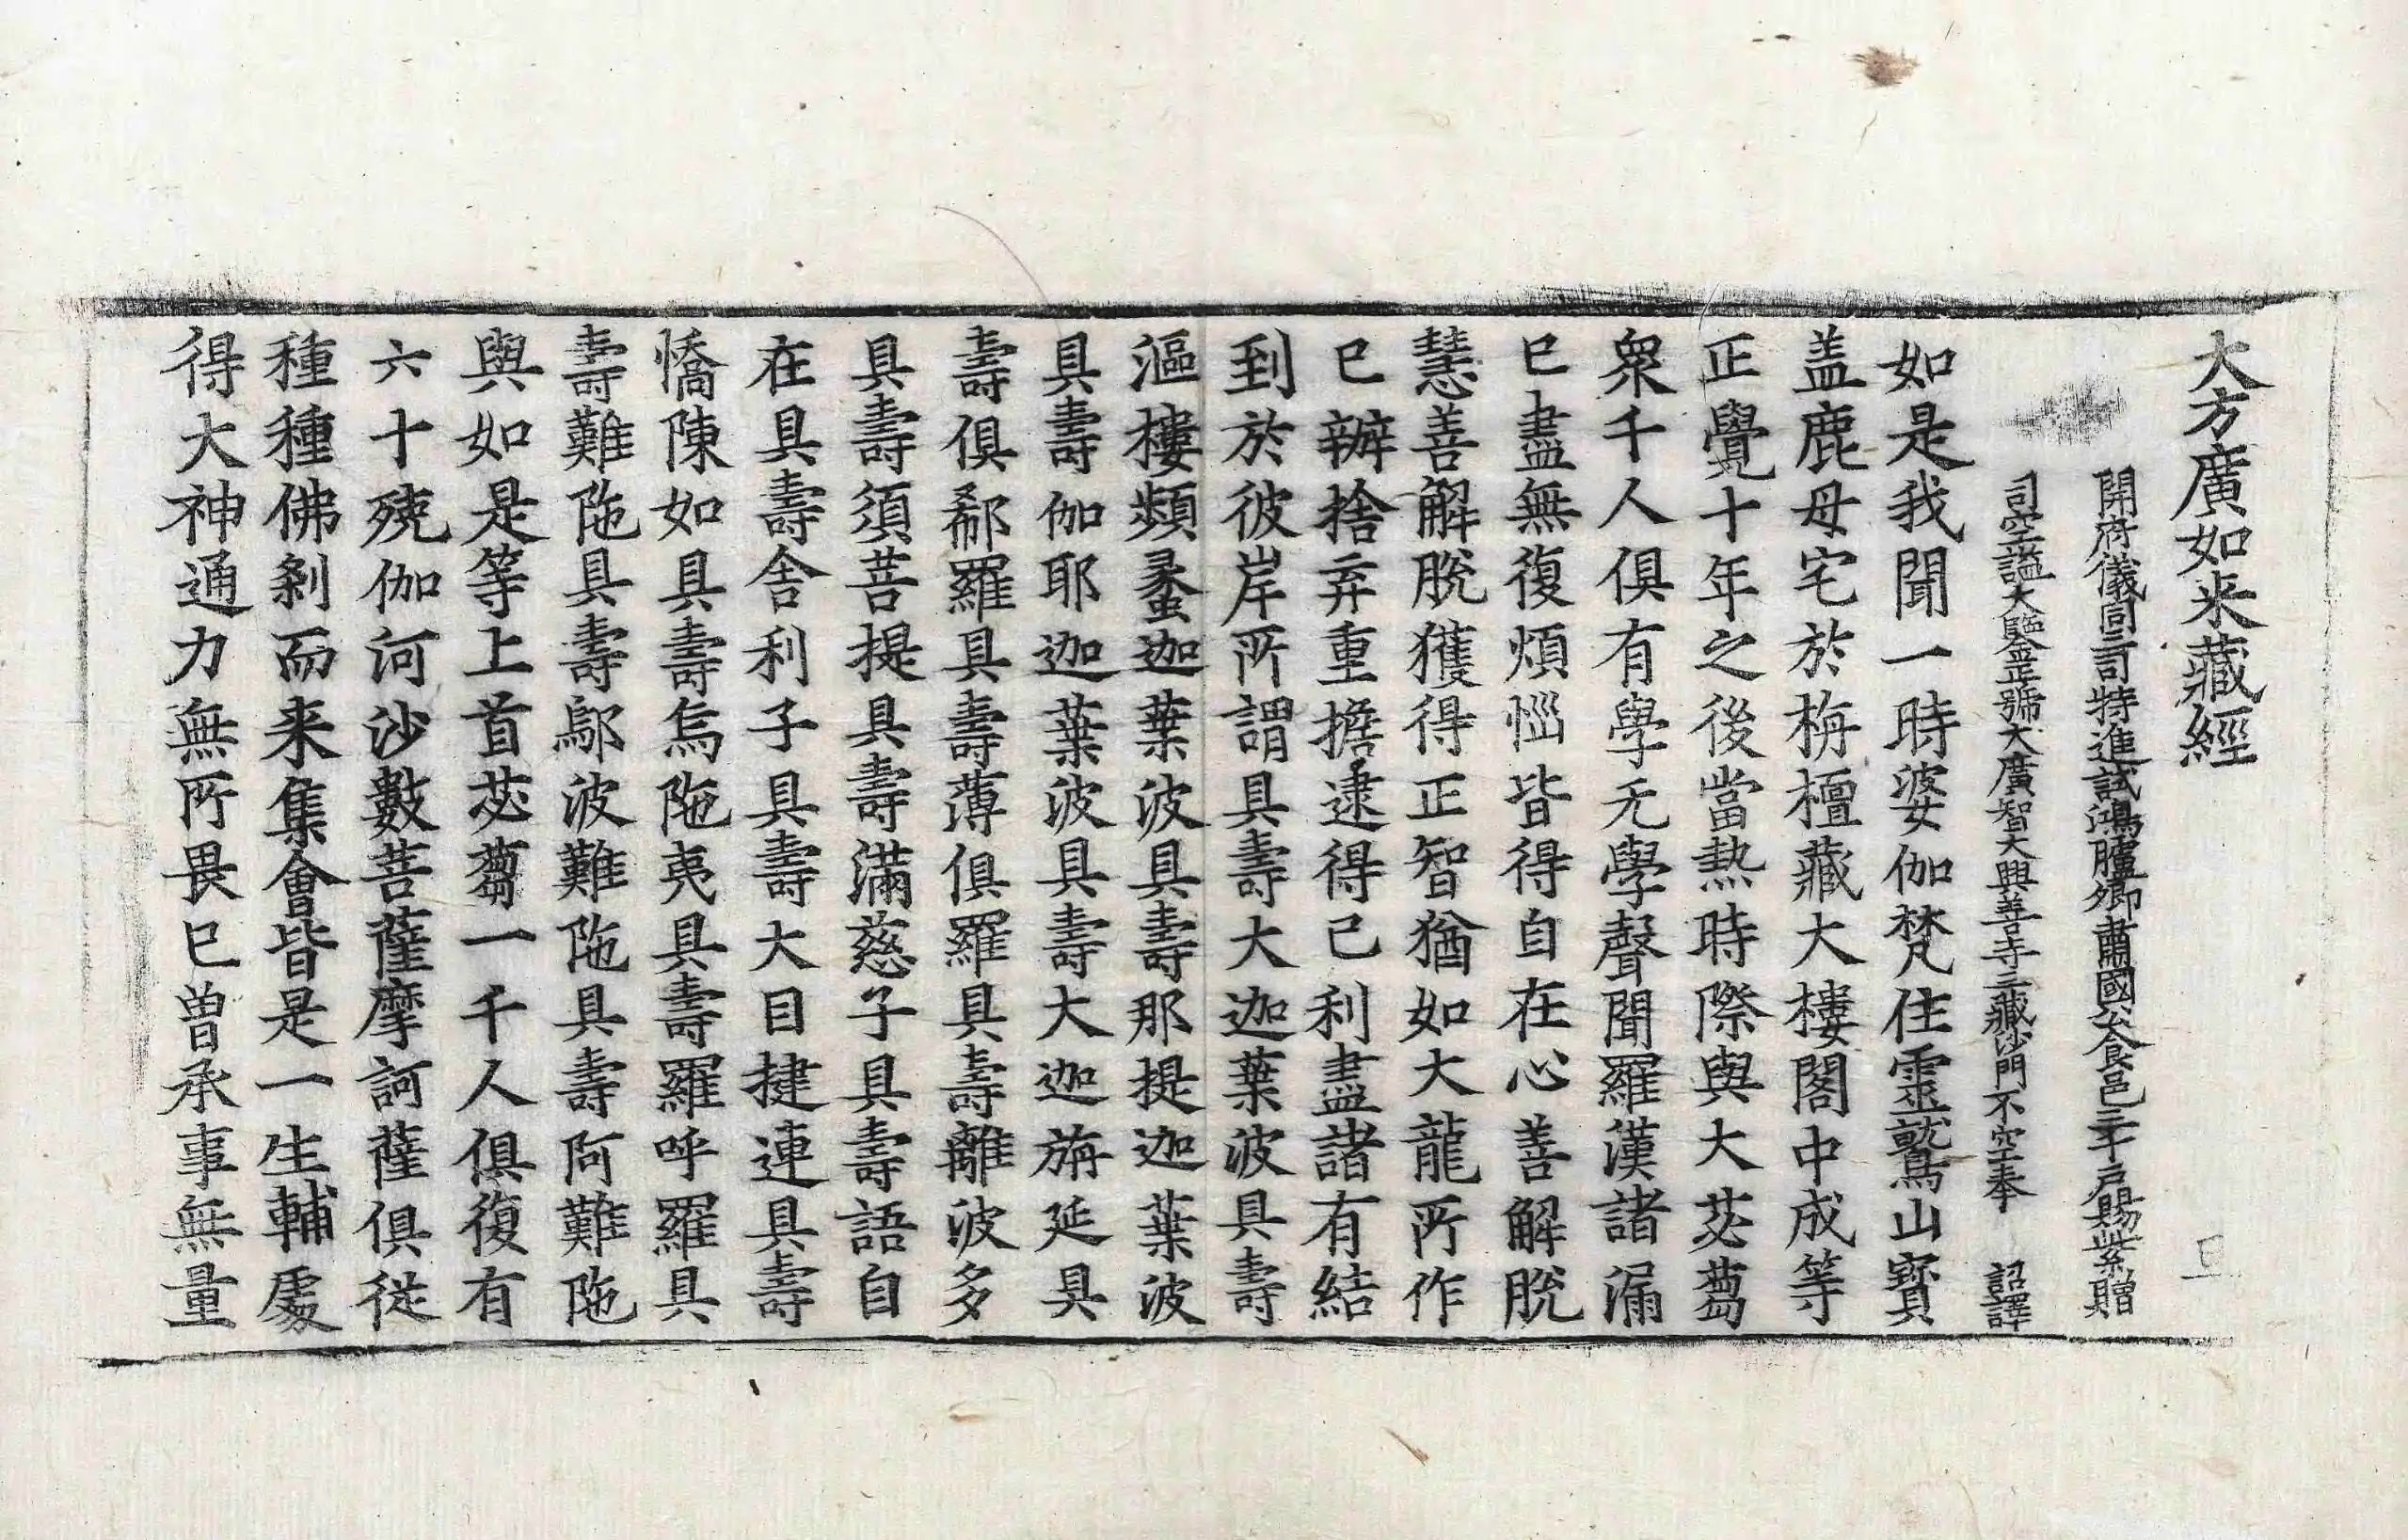 大方廣如来藏經
開府儀同三司特進試鴻臚卿肅國公食邑三千戶賜紫贈
司空謚大鑒正號大廣智大興善寺三藏沙門不空奉　詔譯
如是我聞一時婆伽梵住靈鷲山寳
盖鹿母宅於栴檀藏大樓閣中成等
正覺十年之後當熱時際與大苾蒭
衆千人俱有學无學聲聞羅漢諸漏
已盡無復煩惱皆得自在心善解脫
慧善解脫獲得正智猶如大龍所作
已辦捨弃重擔逮得己利盡諸有結
到於彼岸所謂具壽大迦葉波具壽
漚樓頻螺迦葉波具壽那提迦葉波
具壽伽耶迦葉波具壽大迦旃延具
壽俱郗羅具壽薄俱羅具壽離波多
具壽須菩提具壽滿慈子具壽語自
在具壽舍利子具壽大目揵連具壽
憍陳如具壽烏陁夷具壽羅呼羅具
壽難陁具壽鄔波難陁具壽阿難陁
與如是等上首苾蒭一千人俱復有
六十殑伽河沙數菩薩摩訶薩俱從
種種佛剎而来集會皆是一生輔處
得大神通力無所畏已曽承事無量